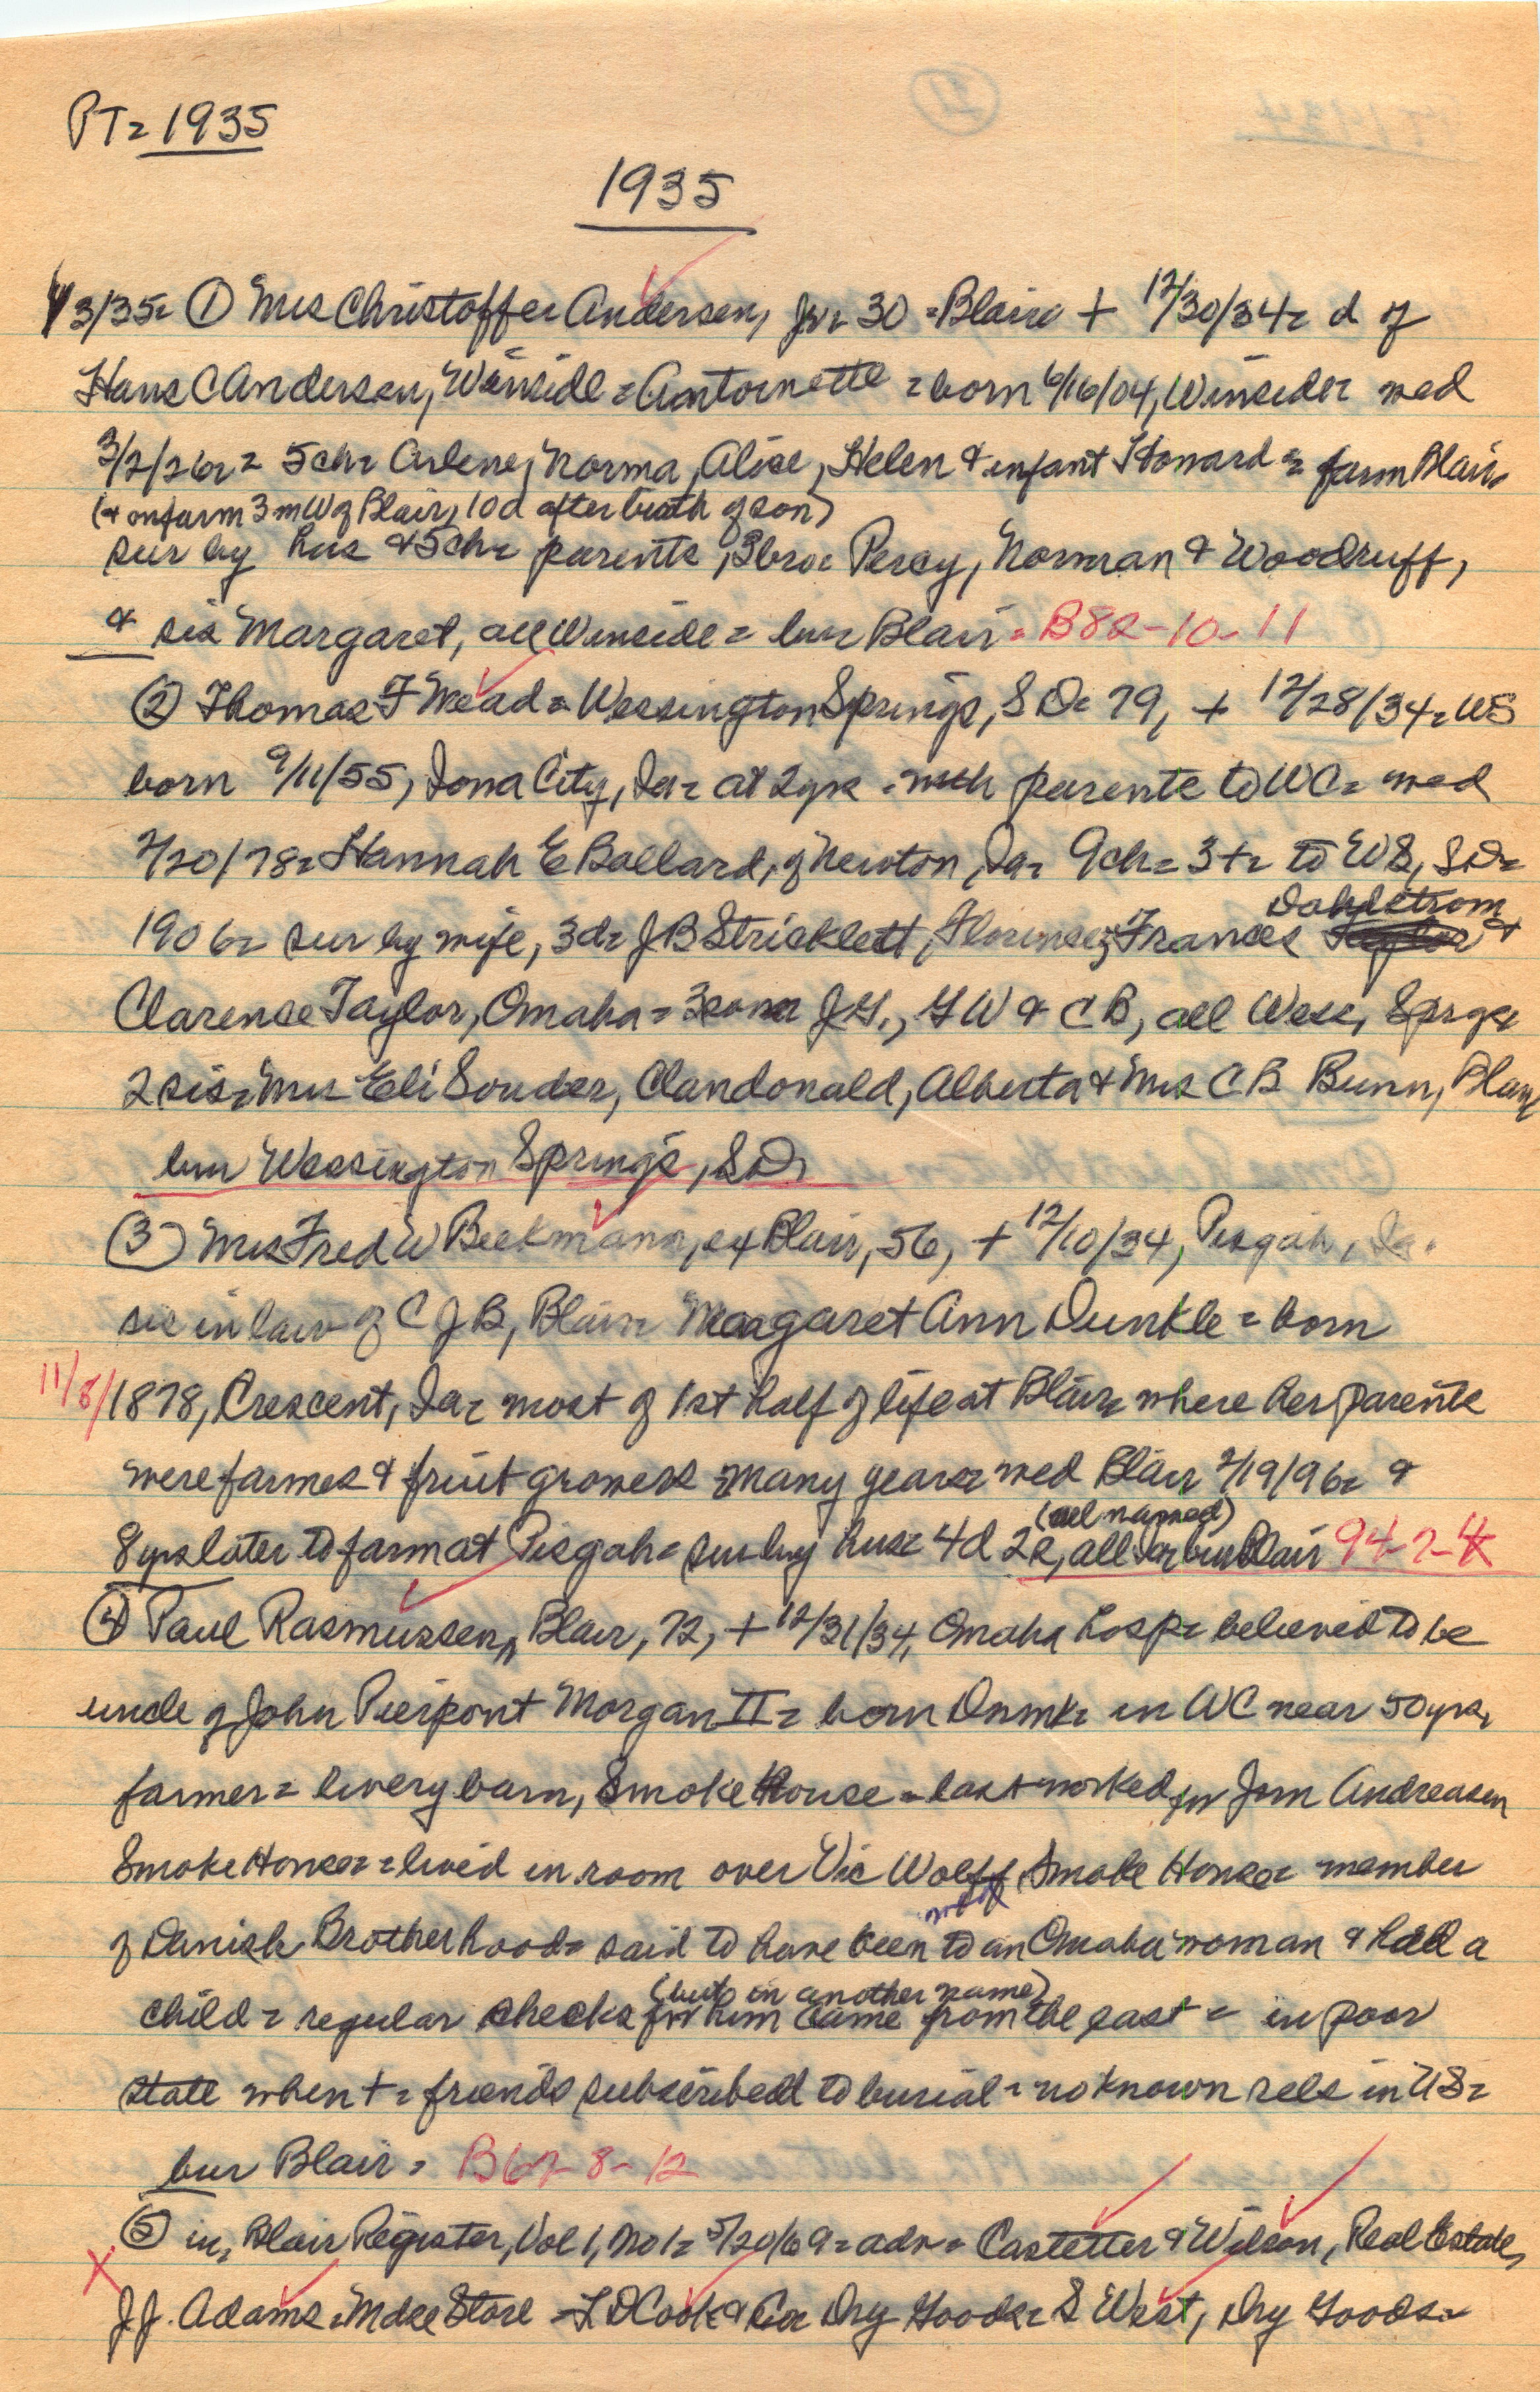 PT= 1935
1935
1/3/35= ① Mrs Christoffer Andersen, Jr= 30 = Blair + 12/30/34= d of
Hans C Andersen, Winside = Antoinette = born 6/16/04, Winside= wed
3/2/26= = 5 ch= Arlene, Norma, Alice, Helen & infant Howard = farm Blair=
(+ on farm 3 m W of Blair, 10 d after birth of son)
sur by hus & 5 ch= parents, 3 bro= Percy, Norman & Woodruff,
& sis Margaret, all Winside = bur Blair = B82-10-11
② Thomas F Mead = Wessington Springs, SD= 79, + 12/28/34= WS
born 9/11/55, Iowa City, Ia= at 2 yrs = with parents to WC= wed
2/20/78= Hannah E Ballard, of Newton, Ia= 9 ch= 3+= to WS, SD=
Dahlstrom
1906= sur by wife, 3d= J B Stricklett, Florence; Frances Taylor &
Clarence Taylor, Omaha = 3 sons J H, G W & C B, all Wess, Sprgs
2 sis= Mrs Eli Souder, Clandonald, Alberta & Mrs C B Bunn, Blair
bur Wessington Springs, SD=
③ Mrs Fred W Beekmann, ex Blair, 56, + 12/10/34, Pisgah, Ia.
sis in law of C J B, Blair= Margaret Ann Dunkle = born
11/8/1878, Crescent, Ia= most of 1st half of life at Blair= where her parents
were farmes & fruit growers = many years= wed Blair 2/19/96= &
(all named)
8 yrs later to farm at Pisgah= sur by hus= 4d 2s, all Ia= bur Blair 94-2-4
④ Paul Rasmussen, Blair, 72, + 12/31/34, Omaha hosp= believed to be
uncle of John Pierpont Morgan II = born Dnmk= in WC near 50 yrs,
farmer = livery barn, Smoke House = last worked for Jorn Andreasen
Smoke House= = lived in room over Vic Wolff Smoke House= member
wed
of Danish Brotherhood= said to have been to an Omaha woman & had a
(but in another name)
child = regular checks for him came from the east = in poor
state when + = friends subscribed to burial = no known rels in US=
bur Blair = B67-8-12
⑤ in, Blair Register, Vol 1, No 1= 5/20/69= adv= Castetter & Wilson, Real Estate,
J J. Adams = Mdse Store = L D Cook & Co= Dry Goods= S West, Dry Goods=